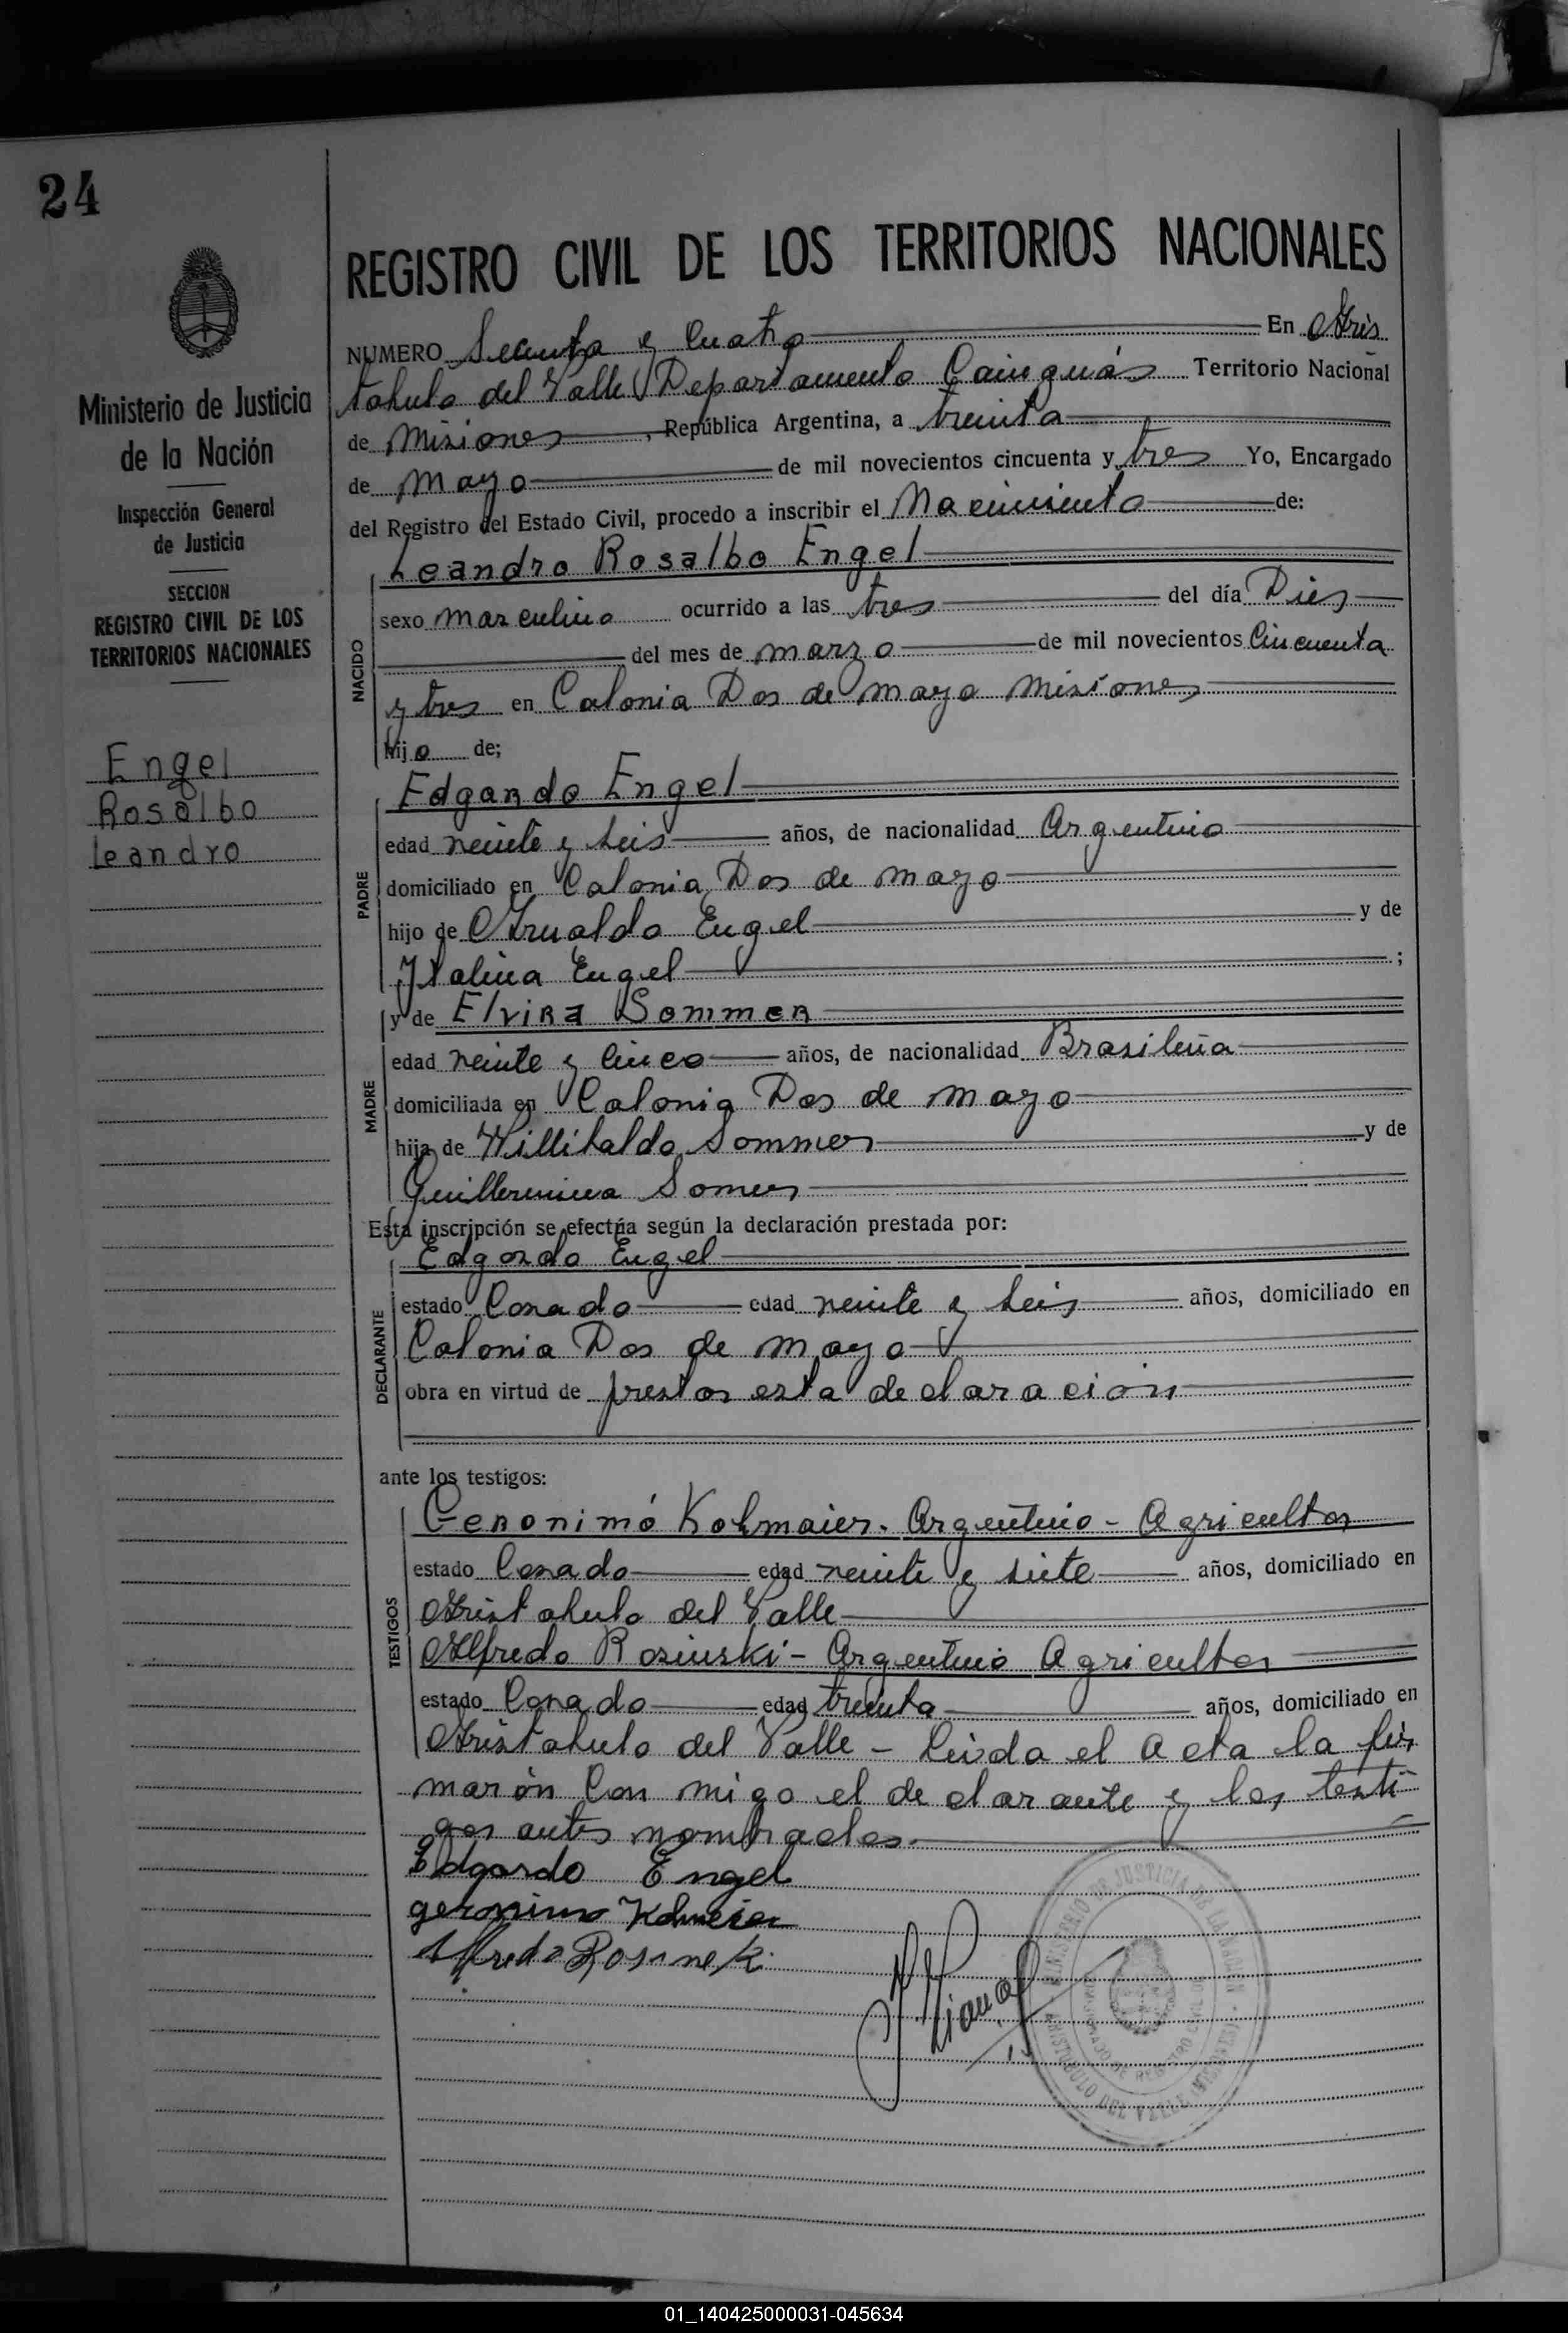 24
REGISTRO CIVIL DE LOS TERRITORIOS NACIONALES
Ministerio de Justicia
de la Nación
Inspección General
de Justicia
SECCION
REGISTRO CIVIL DE LOS
TERRITORIOS NACIONALES
Engel
Rosalbo
Leandro
NUMERO y Cuatro En Aris
tobulo del Valle Departamento Cainguás Territorio Nacional
de Misiones, República Argentina, a treinta
de mayo de mil novecientos cincuenta y tres Yo, Encargado
del Registro del Estado Civil, procedo a inscribir el Nacimiento de:
NACIDO
Leandro Rosalbo Engel
sexo masculino ocurrido a las tres del día Dies
del mes de marzo de mil novecientos Cincuenta
y tres en Colonia Dos de mayo Misiones
hijo de;
PADRE
Edgardo Engel
edad veinte y seis años, de nacionalidad Argentino
domiciliado en Colonia Dos de mayo
hijo de Arnaldo Engel y de
Italina Engel ;
MADRE
y de Elvira Sommer
edad veinte y cinco años, de nacionalidad Brasileña
domiciliada en Colonia Dos de mayo
hija de Willibaldo Sommer y de
Guillermina Somer
Esta inscripción se efectúa según la declaración prestada por:
DECLARANTE
Edgardo Engel
estado Casado edad veinte y seis años, domiciliado en
Colonia Dos de mayo
obra en virtud de prestar esta declaración
ante los testigos:
TESTIGOS
Geronimó Kohmaier. Argentino - Agricultor
estado Casado edad veinte y siete años, domiciliado en
Aristobulo del Valle
Alfredo Rosinski - Argentino Agricultor
estado Casado edad treinta años, domiciliado en
Aristobulo del Valle - Leida el Acta la fir
marón Con migo el declarante y los testi
gos antes nombrados.
Edgardo Engel
geronimo Kohmeier
Alfredo Rosinek
MINISTERIO DE JUSTICIA DE LA NACION
ARISTOBULO DEL VALLE (MISIONES)
01_140425000031-045634